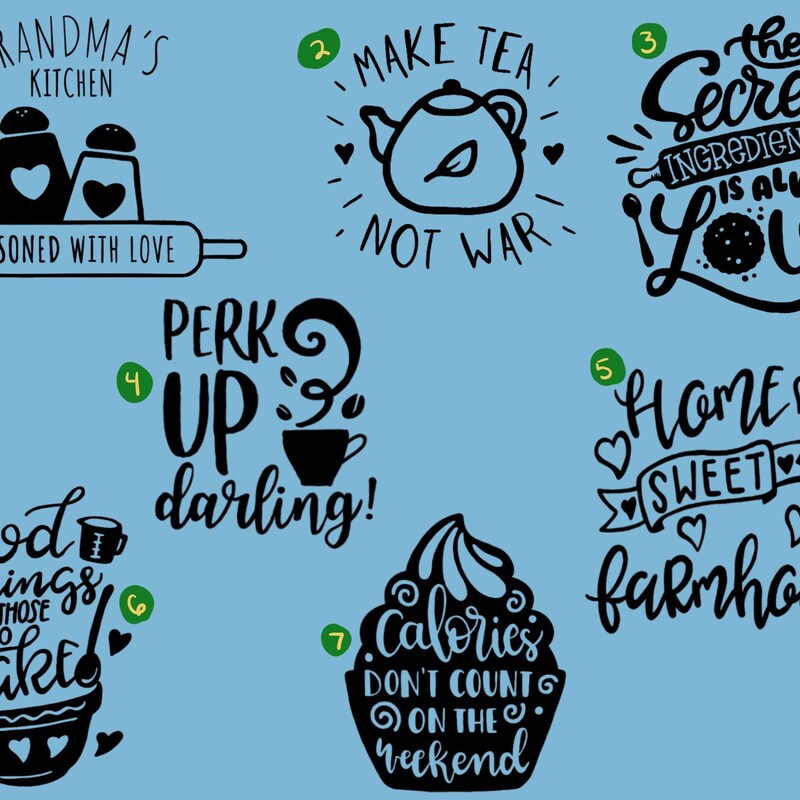 RANDMA'S
KITCHEN
SONED WITH LOVE
2
MAKE TEA
NOT WAR
3
the
Secre
INGREDIEN
IS AL
Lov
4
PERK
UP
darling!
5
HOME
SWEET
farmho
od
ings
THOSE
O
ake
6
7
Calories
DON'T COUNT
ON THE
weekend